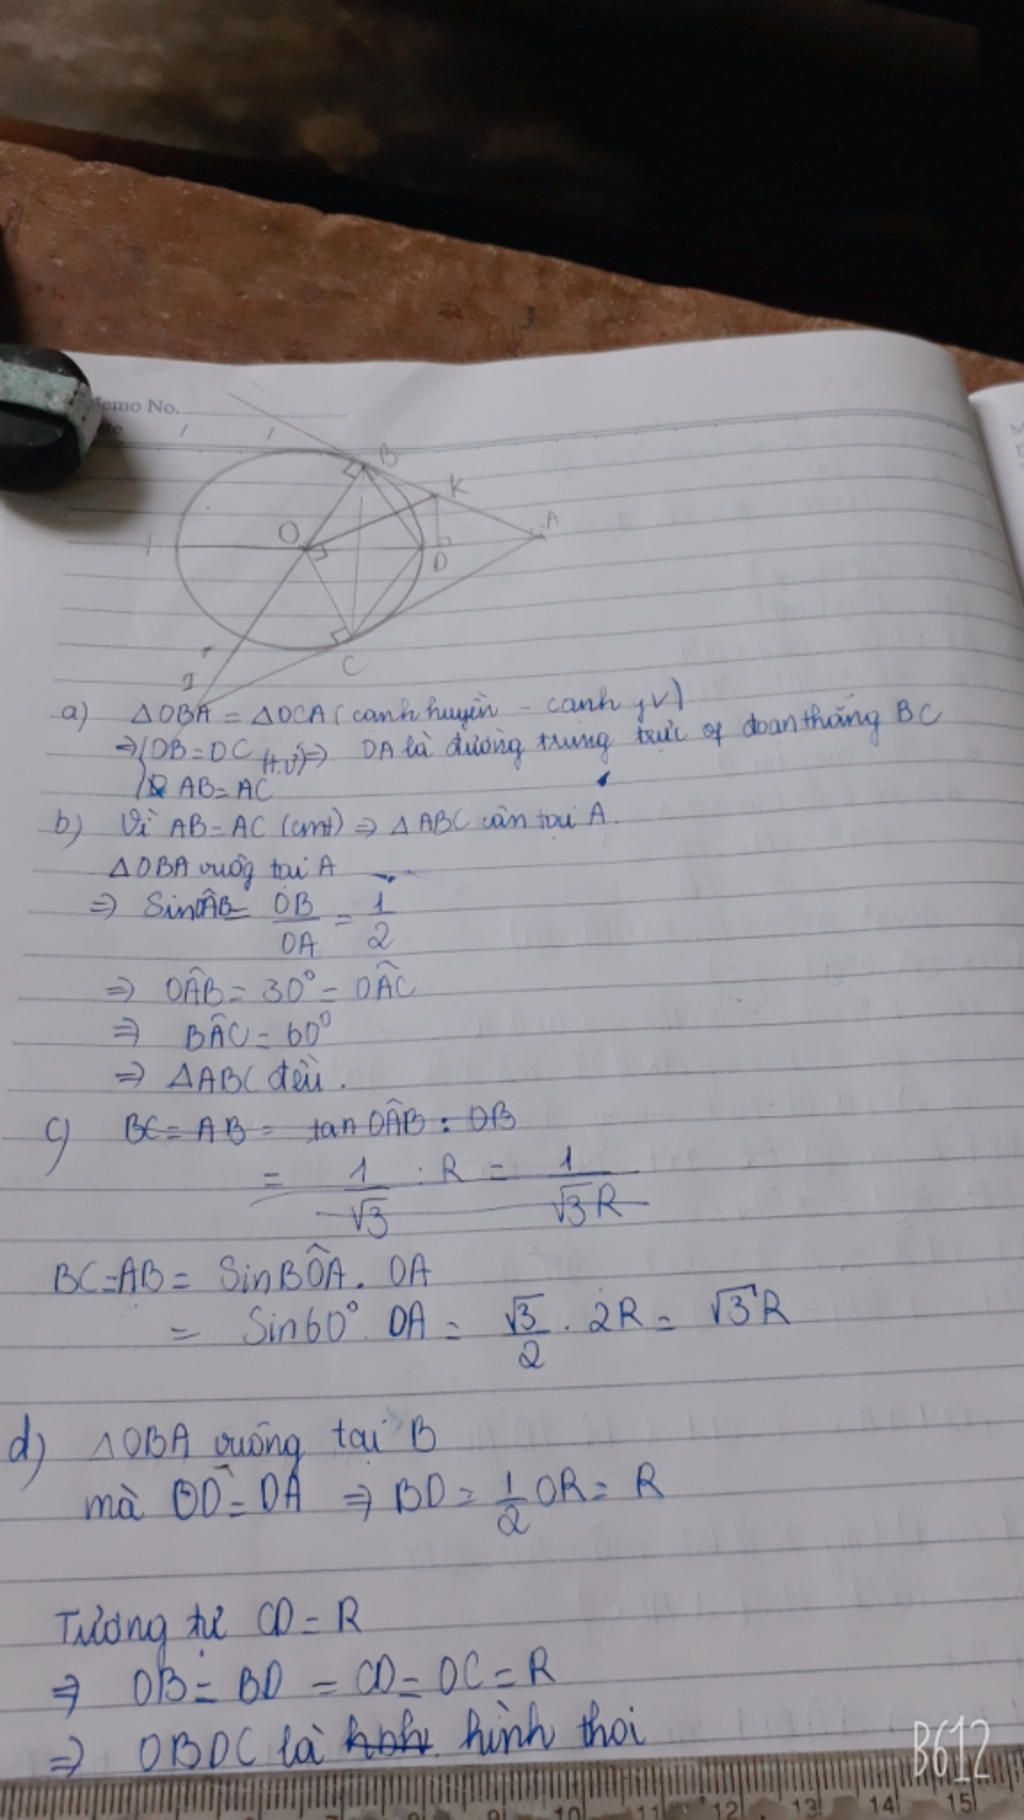 Memo No.
B
K
A
O
D
C
I
a) ΔOBA = ΔOCA (cạnh huyền - cạnh gv)
⇒ OB = OC (t.ư) ⇒ OA là đường trung trực of đoạn thẳng BC
AB = AC
b) Vì AB = AC (cmt) ⇒ ΔABC cân tại A.
ΔOBA vuông tại A
⇒ Sin OÂB = OB/OA = 1/2
⇒ OÂB = 30° = OÂC
⇒ BÂC = 60°
⇒ ΔABC đều.
c) BC = AB = tan OÂB : OB
= 1/√3 : R = 1/√3R
BC = AB = Sin BÔA . OA
= Sin 60° . OA = √3/2 . 2R = √3R
d) ΔOBA vuông tại B
mà OD = DA ⇒ BD = 1/2 OR = R
Tương tự CD = R
⇒ OB = BD = CD = OC = R
⇒ OBDC là hình thoi
B612
10 11 12 13 14 15